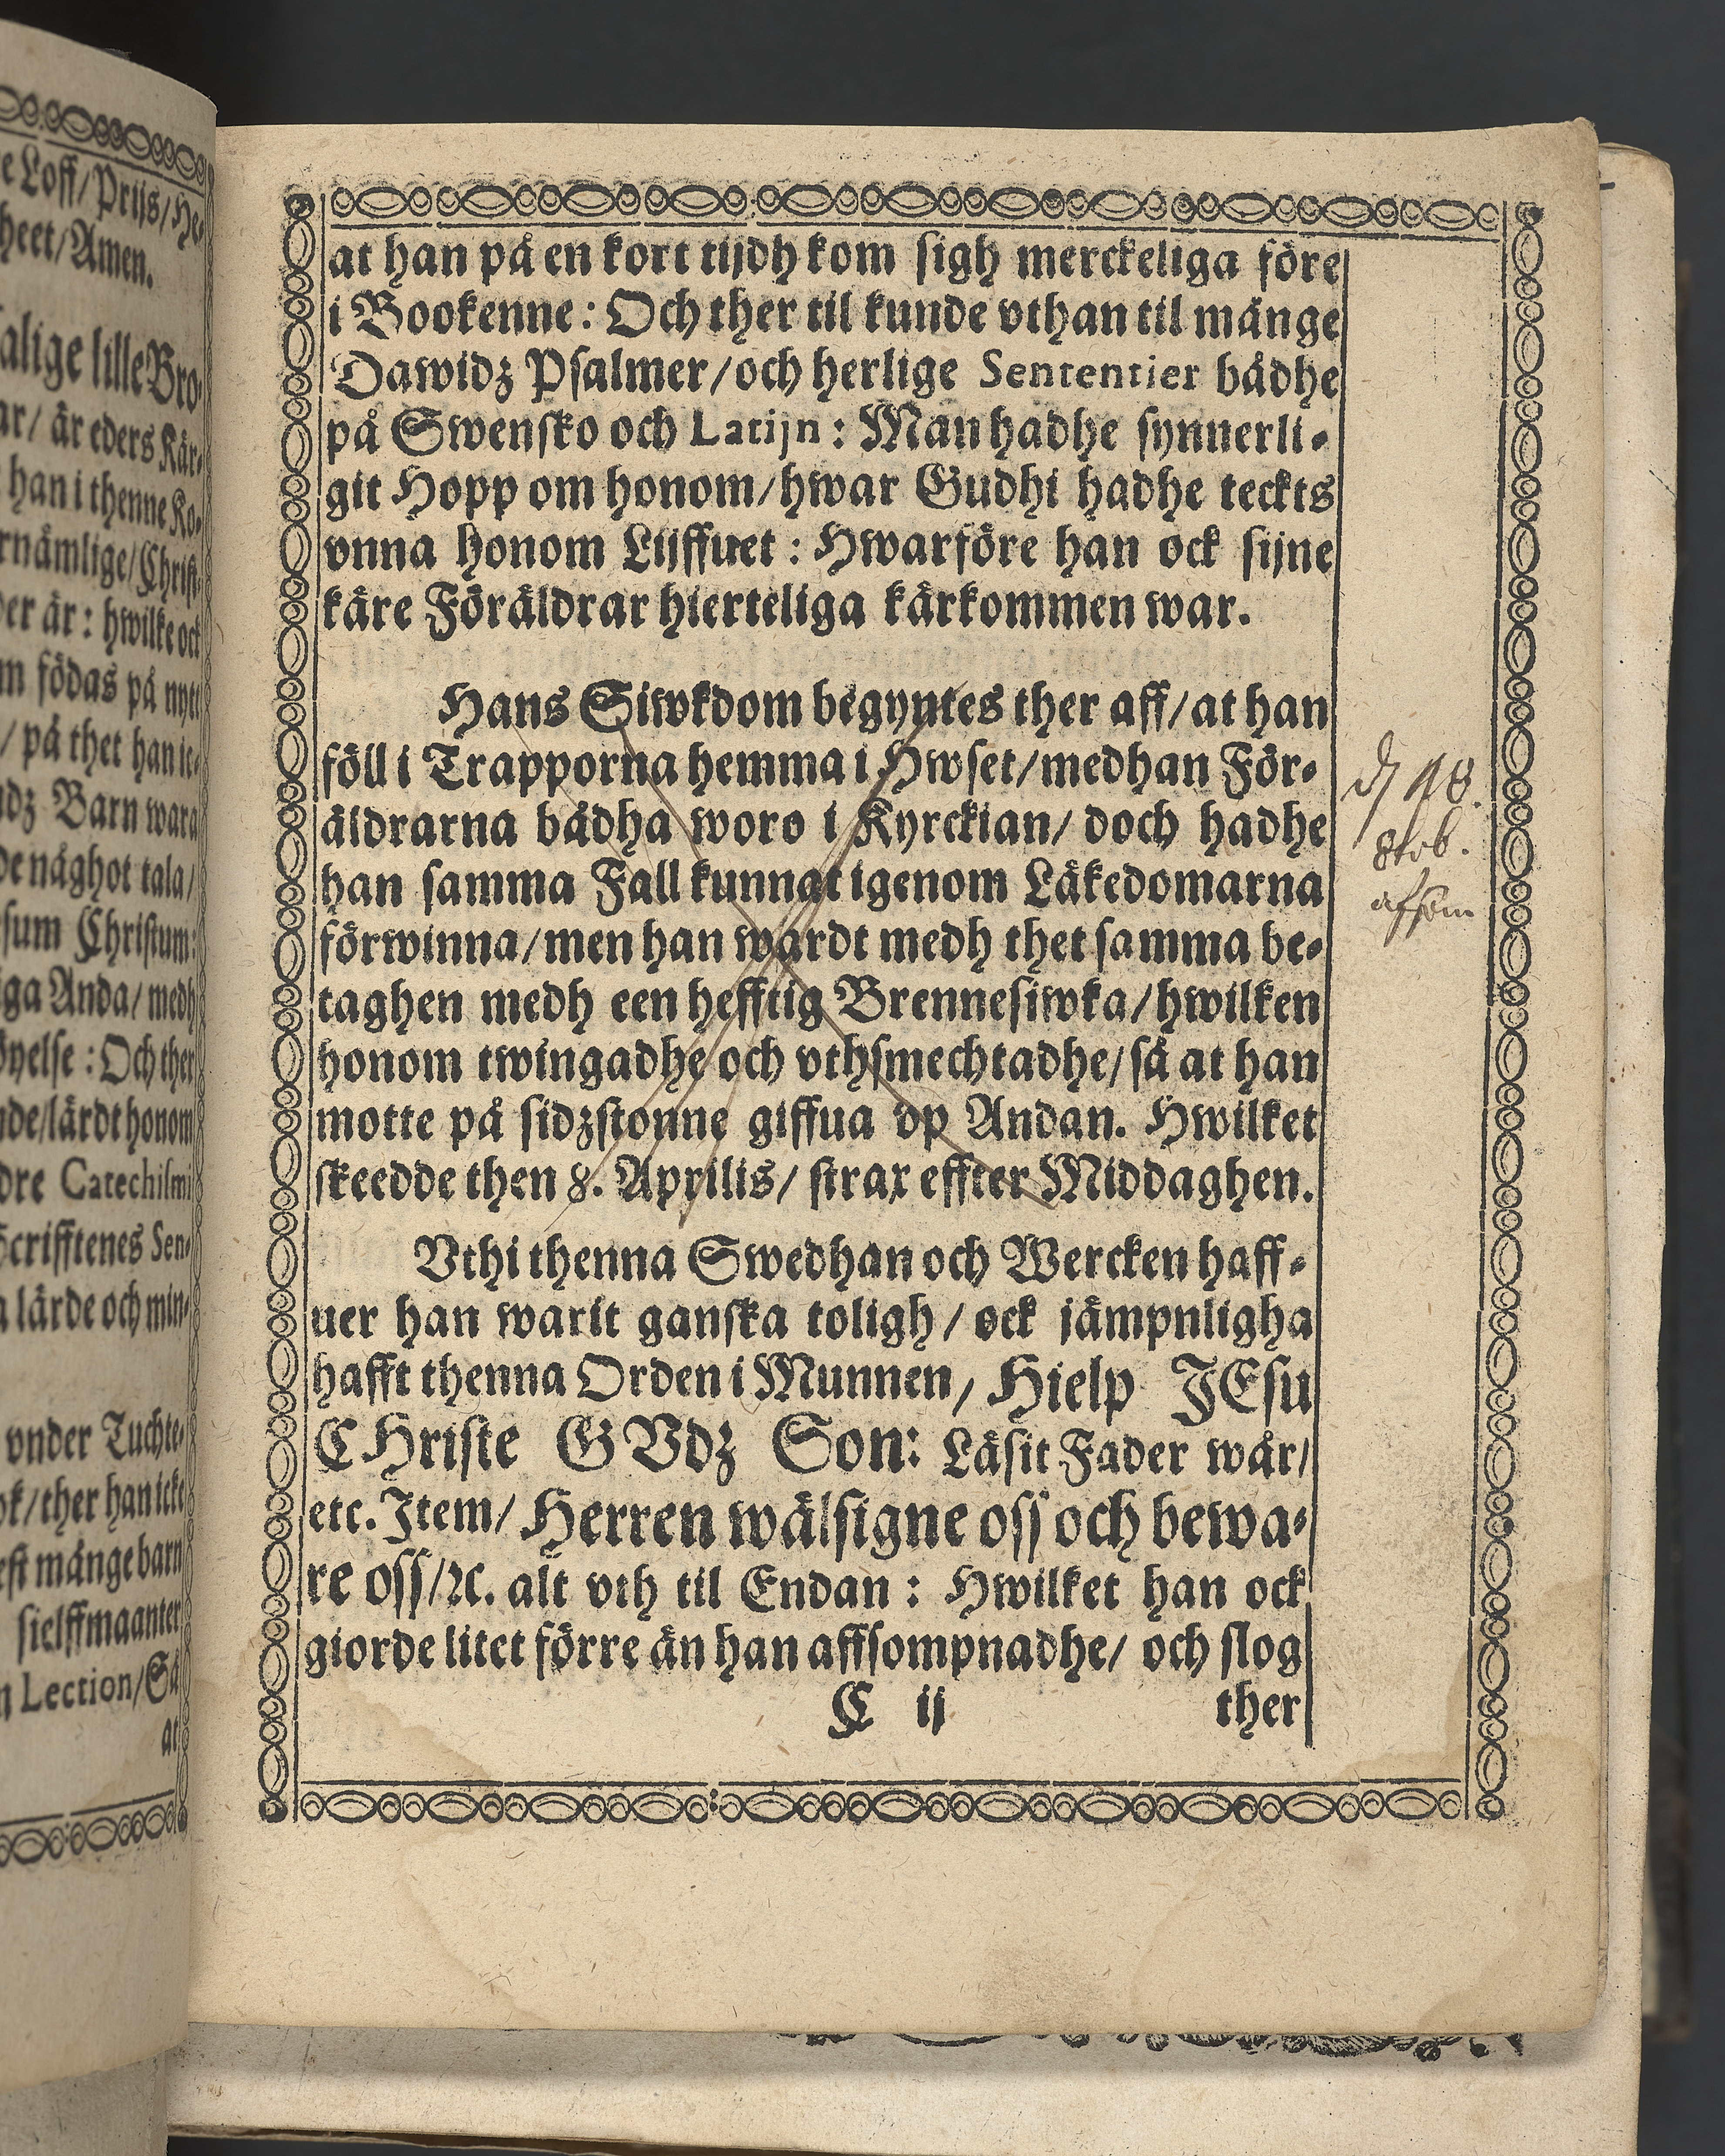 e Loff/Prijs/He-
heet/Amen.
alige lille Bro-
ar/ är eders Kär-
han i thenne Ko-
rnämlige/Christ-
der är : hwilke ock
m födas på nytt
/ på thet han ic-
udz Barn wara
de någhot tala/
sum Christum:
iga Anda/ medh
öyelse : Och ther
nde/lärdt honom
dre Catechismi
Scrifftenes Sen-
a lärde och min-
vnder Tuchte-
ok/ther han icke
est månge barn
sielffmaanter
n Lection/Så
at
at han på en kort tijdh kom sigh merckeliga före
i Bookenne : Och ther til kunde vthan til månge
Dawidz Psalmer/och herlige Sententier bådhe
på Swensko och Latijn : Man hadhe synnerli-
git Hopp om honom/hwar Gudhi hadhe teckts
vnna honom Lijffuet : Hwarföre han ock sijne
käre Föräldrar hierteliga kärkommen war.
Hans Siwkdom begyntes ther aff/at han
föll i Trapporna hemma i Hwset/medhan För-
äldrarna bådha woro i Kyrckian/ doch hadhe
han samma Fall kunnat igenom Läkedomarna
förwinna/men han wardt medh thet samma be-
taghen medh een hefftig Brennesiwka/hwilken
honom twingadhe och vthsmechtadhe/så at han
motte på sidzstonne giffua vp Andan. Hwilket
skeedde then 8. Aprilis/ strax effter Middaghen.
Vthi thenna Swedhan och Wercken haff-
uer han warit ganska toligh/ ock jämpnligha
hafft thenna Orden i Munnen/ Hielp JEsu
CHriste GVdz Son: Läsit Fader wår/
etc. Item/ Herren wälsigne oss och bewa-
re oss/ꝛc. alt vth til Endan : Hwilket han ock
giorde litet förre än han affsompnadhe/ och slog
C ij
ther